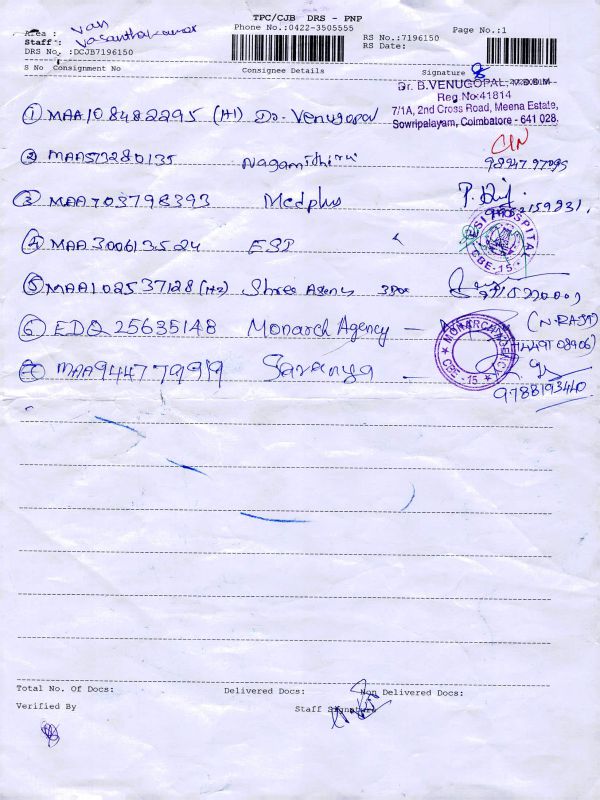 TPC/CJB DRS - PNP
Phone No.:0422-3505555
Page No.:1
Area : Van
Staff : Vasanthakumar
RS No.:7196150
RS Date:
DRS No. :DCJB7196150
S No Consignment No Consignee Details Signature
Dr. B.VENUGOPAL,
Reg No:41814
7/1A, 2nd Cross Road, Meena Estate,
Sowripalayam, Coimbatore - 641 028.
① MAA108482295 (H1) Dr. Venugopal
② MAA573280135 Nagamithirai 9894797095
③ MAA703798393 Medplus
④ MAA300613524 ESI
ESI HOSPITAL
CBE-15
⑤ MAA102537128 (H2) Shree Agency
⑥ EDQ25635148 Monarch Agency — (N.RAJA)
MONARCH AGENCY
CBE - 15
⑦ MAA944779919 Saranya —
9788193440
Total No. Of Docs: Delivered Docs: Non Delivered Docs:
Verified By Staff Signature